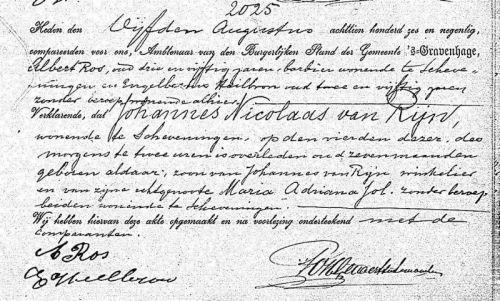 2025
Heden den Vijfden Augustus achttien honderd zes en negentig,
compareerden voor ons, Ambtenaar van den Burgerlijken Stand der Gemeente 's-Gravenhage,
Albert Ros, oud drie en vijftig jaren, barbier wonende te Scheve-
ningen en Engelbertus Heilbron oud twee en vijftig jaren
zonder beroep wonende alhier
Verklarende, dat Johannes Nicolaas van Rijn,
wonende te Scheveningen, op den vierden dezer, des
morgens te twee uren is overleden oud zeven maanden
geboren aldaar, zoon van Johannes van Rijn winkelier
en van zijne echtgenoote Maria Adriana Jol, zonder beroep
beiden wonende te Scheveningen.
Wij hebben hiervan deze akte opgemaakt en na voorlezing onderteekend met de
Comparanten.
A Ros